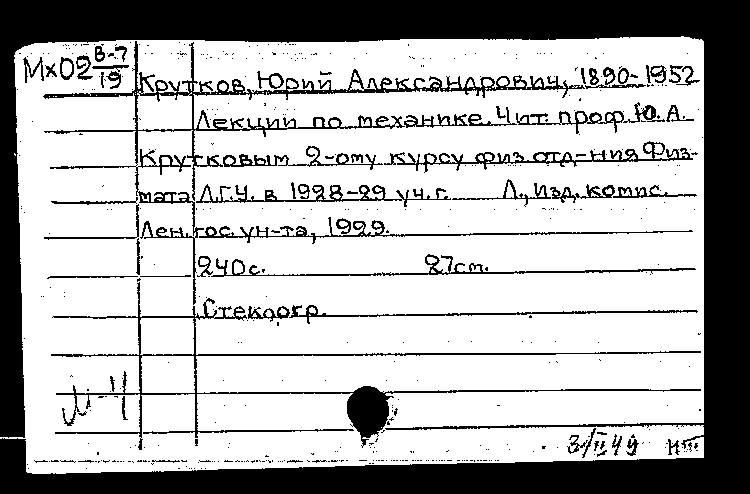 Мх02 В-7/19
Крутков, Юрий Александрович, 1890-1952
Лекции по механике. Чит. проф. Ю. А.
Крутковым 2-ому курсу физ. отд-ния Физ-
мата Л.Г.У. в 1928-29 уч. г. Л., Изд. комис.
Лен. гос. ун-та, 1929.
240с. 27см.
Стеклогр.
М-4
3/II 49